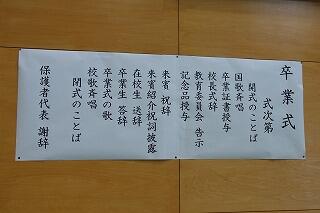 卒業式
式次第
開式のことば
国歌斉唱
卒業証書授与
校長式辞
教育委員会 告示
記念品授与
来賓 祝辞
来賓紹介祝詞披露
在校生 送辞
卒業生 答辞
卒業式の歌
校歌斉唱
閉式のことば
保護者代表 謝辞